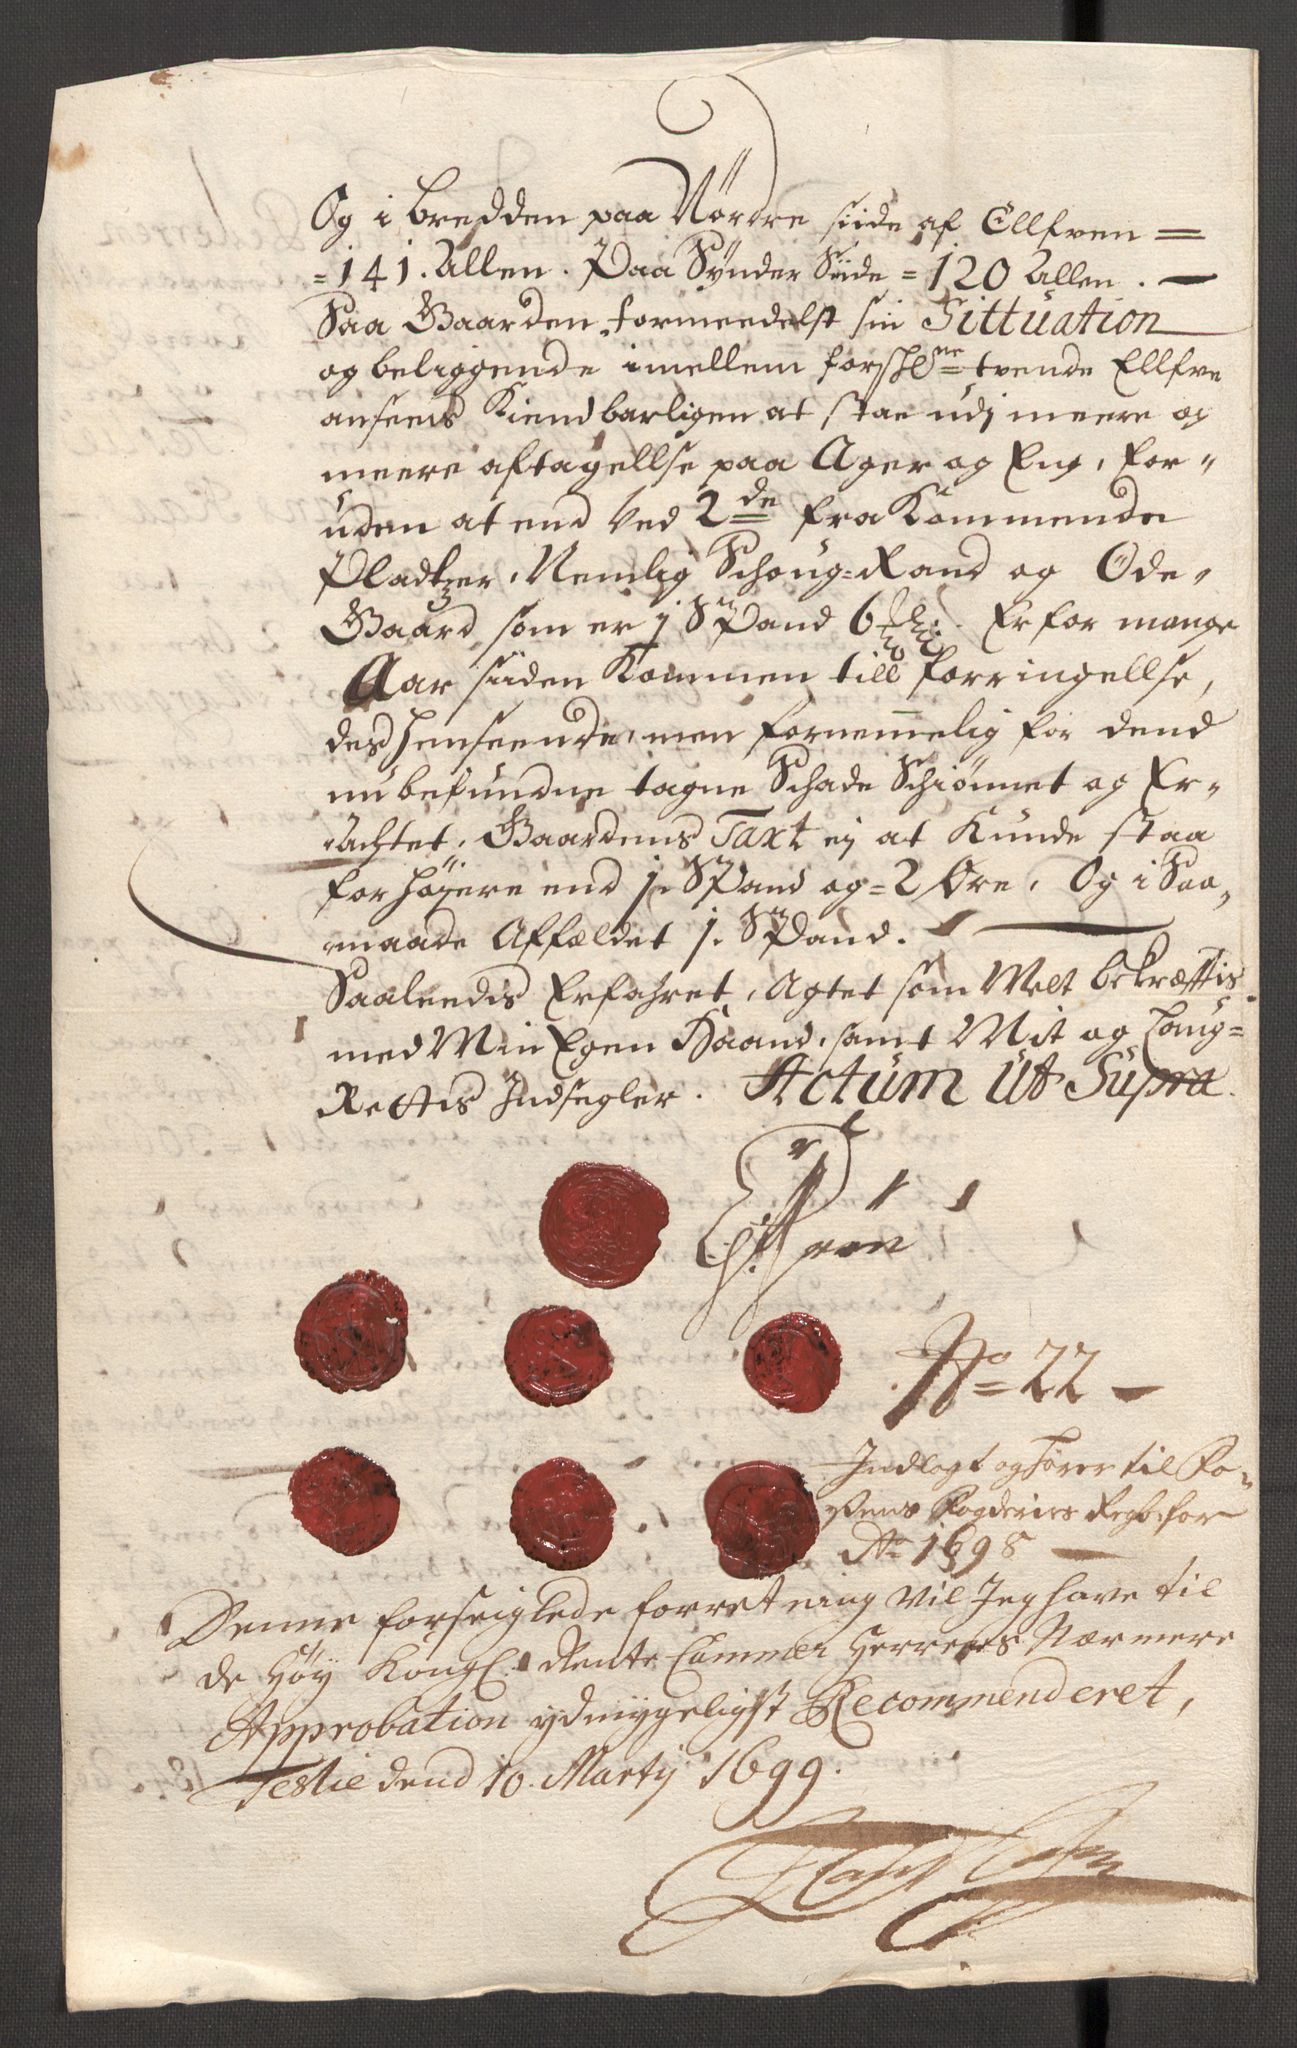 Og i bredden paa Nørdre siide af Ellfven =
= 141. Allen. Paa Sønder Siide = 120 Allen. —
Saa Gaarden, formeedelst sin Sittuation
og beliggende imellem forschr^ne tvende Ellfve
ansees Kiendbarligen at stae udj meere og
meere aftagellse paa Ager og Eng, for-
uden at end ved 2^de fra Kommende
Pladtzer, Nemlig Schoug-Rand og Øde-
Gaard som er 1 Spand 6 Er for mange
Aar siiden Kommen till forringellse,
des henseende, men fornemmelig for dend
nu befundne tagne Schade Schiønnet og Er-
achtet, Gaardens Taxt ej at Kunde staa
for høyere end 1. Spand og = 2 Øre, Og i Saa-
maade Affældet 1. Spand.
Saaleedis Erfahret, Agtet som Melt bekræfftis
med Min Egen Haand, samt Mit og Laug-
Rettis Indsegler. Actum Ut Supra.
N^o = 22 —
Indlagt og hører til Fo-
Fogderies Regb. for
A^o 1698 —
Denne forseiglede forretning vil Jeg have til
de Høy Kongl. Rente Cammer Herrers Nærmere
Approbation ydmygeligst Recommenderet,
Leslie dend 10. Martij 1699.